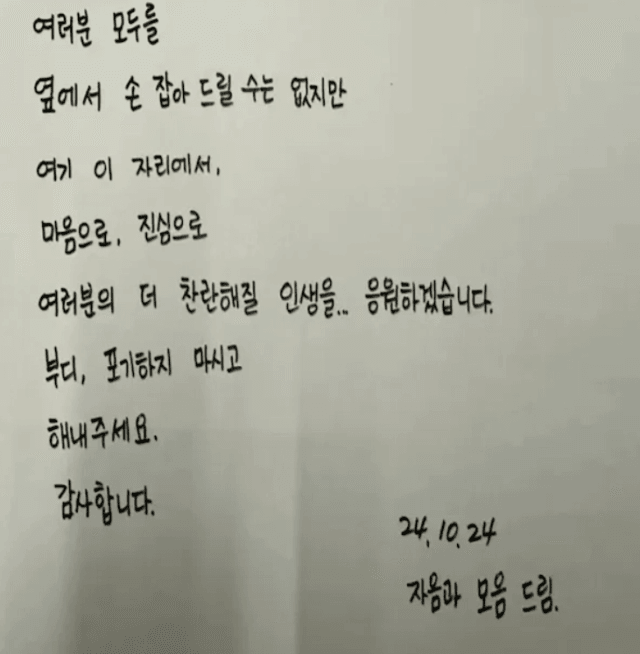 여러분 모두를
옆에서 손 잡아 드릴 수는 없지만
여기 이 자리에서,
마음으로, 진심으로
여러분의 더 찬란해질 인생을.. 응원하겠습니다.
부디, 포기하지 마시고
해내주세요.
감사합니다.
24.10.24
자음과 모음 드림.